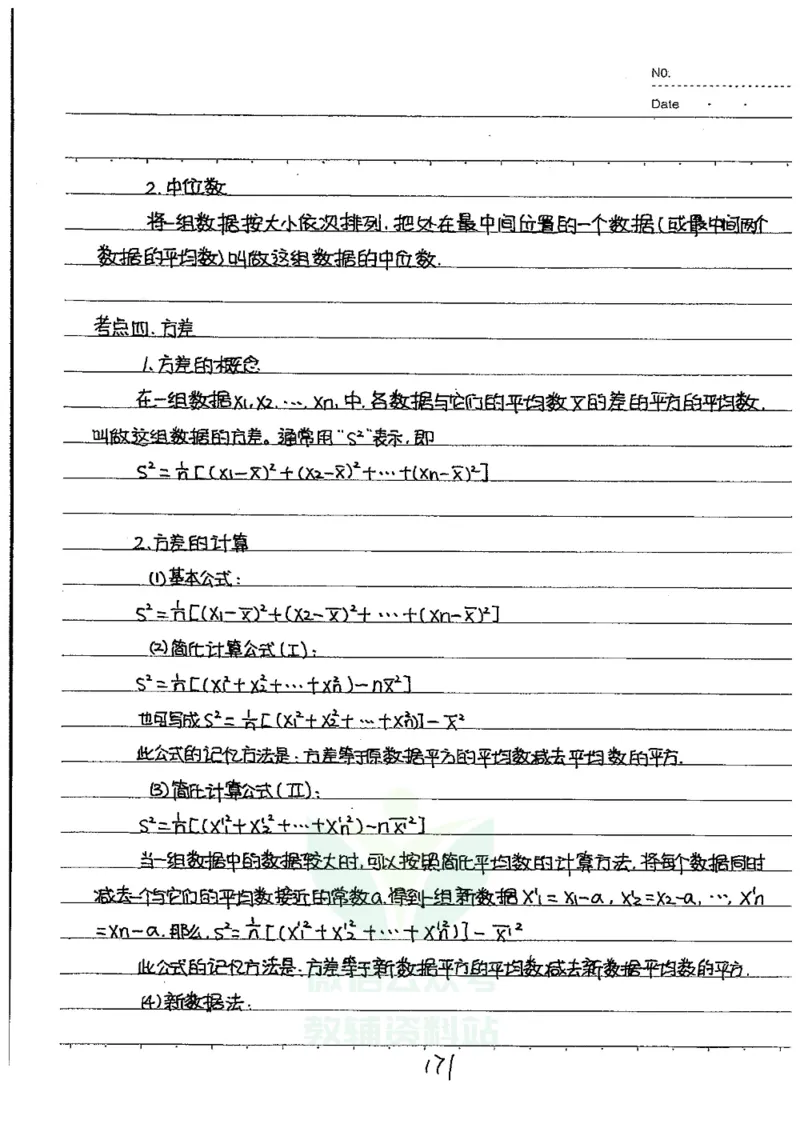 NO.
Date · ·
2.中位数
将一组数据按大小依次排列,把处在最中间位置的一个数据(或最中间两个
数据的平均数)叫做这组数据的中位数.
考点四.方差
1.方差的概念
在一组数据x₁,x₂,…,xn,中,各数据与它们的平均数x̄的差的平方的平均数,
叫做这组数据的方差。通常用“S²”表示,即
S²=1/n[(x₁-x̄)²+(x₂-x̄)²+…+(xn-x̄)²]
2.方差的计算
(1)基本公式:
S²=1/n[(x₁-x̄)²+(x₂-x̄)²+…+(xn-x̄)²]
(2)简化计算公式(I):
S²=1/n[(x₁²+x₂²+…+xn²)-nx̄²]
也可写成S²=1/n[(x₁²+x₂²+…+xn²)]-x̄²
此公式的记忆方法是:方差等于原数据平方的平均数减去平均数的平方.
(3)简化计算公式(II):
S²=1/n[(x'₁²+x'₂²+…+x'n²)-nx̄'²]
当一组数据中的数据较大时,可以按照简化平均数的计算方法,将每个数据同时
减去一个与它们的平均数接近的常数a,得到一组新数据x'₁=x₁-a,x'₂=x₂-a,…,x'n
=xn-a.那么,S²=1/n[(x'₁²+x'₂²+…+x'n²)]-x̄'²
此公式的记忆方法是:方差等于新数据平方的平均数减去新数据平均数的平方.
(4)新数据法:
微信公众号
教辅资料站
171